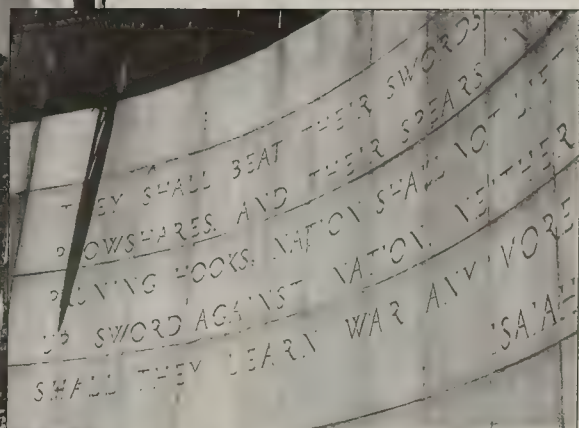 THEY SHALL BEAT THEIR SWORDS
PLOWSHARES. AND THEIR SPEARS
PRUNING HOOKS. NATION SHALL NOT LIFT
UP SWORD AGAINST NATION. NEITHER
SHALL THEY LEARN WAR ANY MORE
ISAIAH